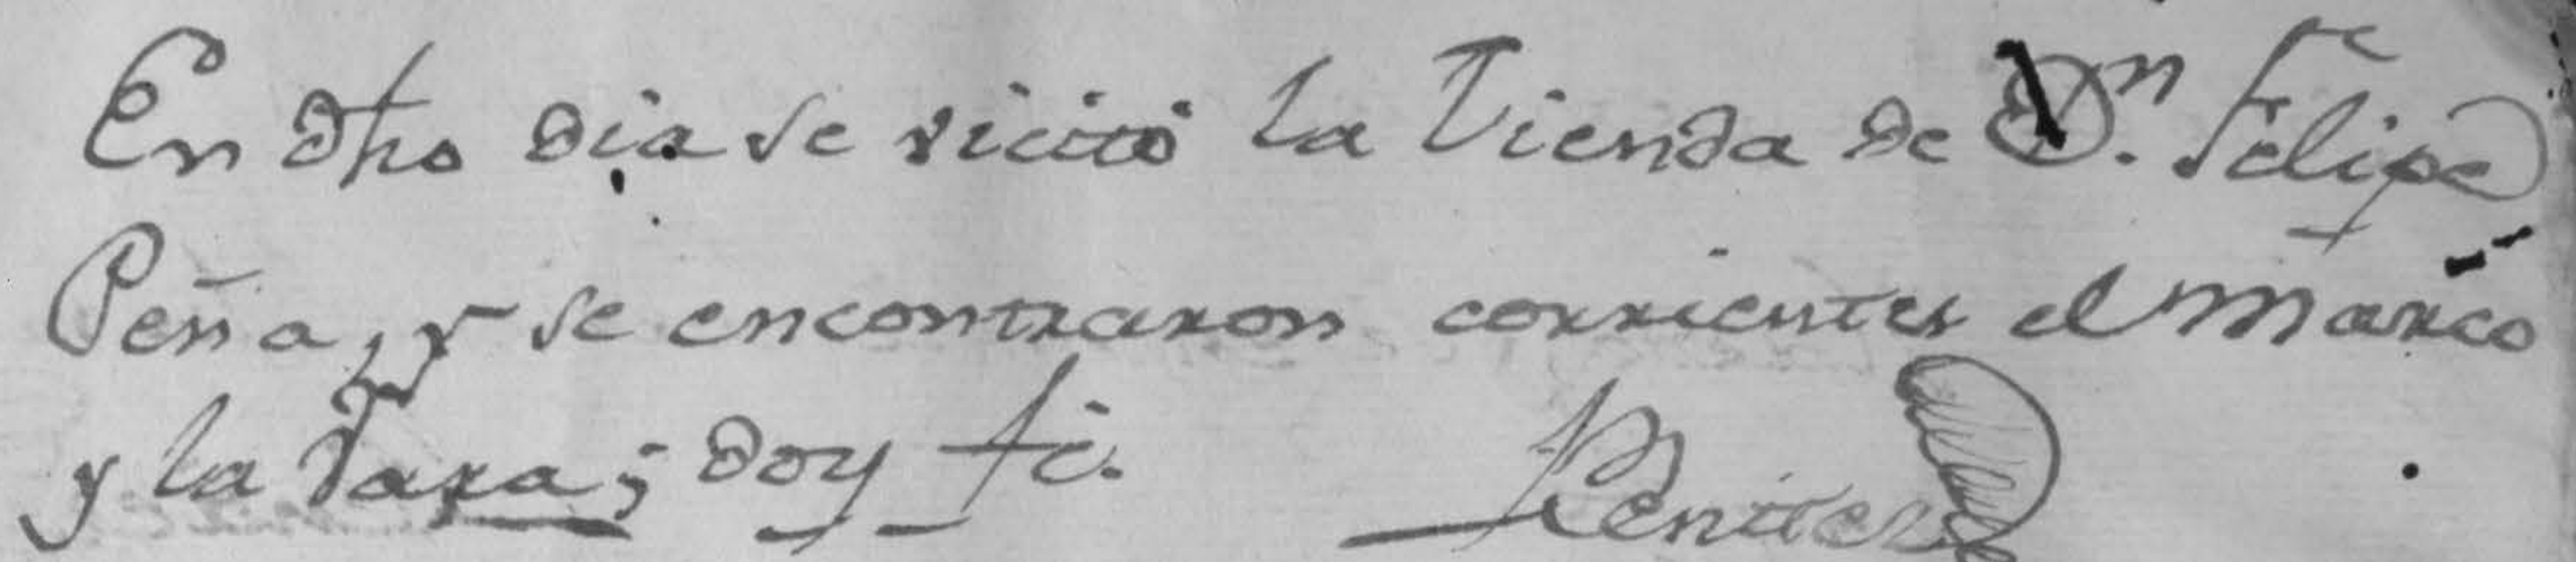 En dho dia se vicitó la Tienda de Dn. Felipe
Peña, y se encontraron corrientes el Marco
y la Vara; doy fé.